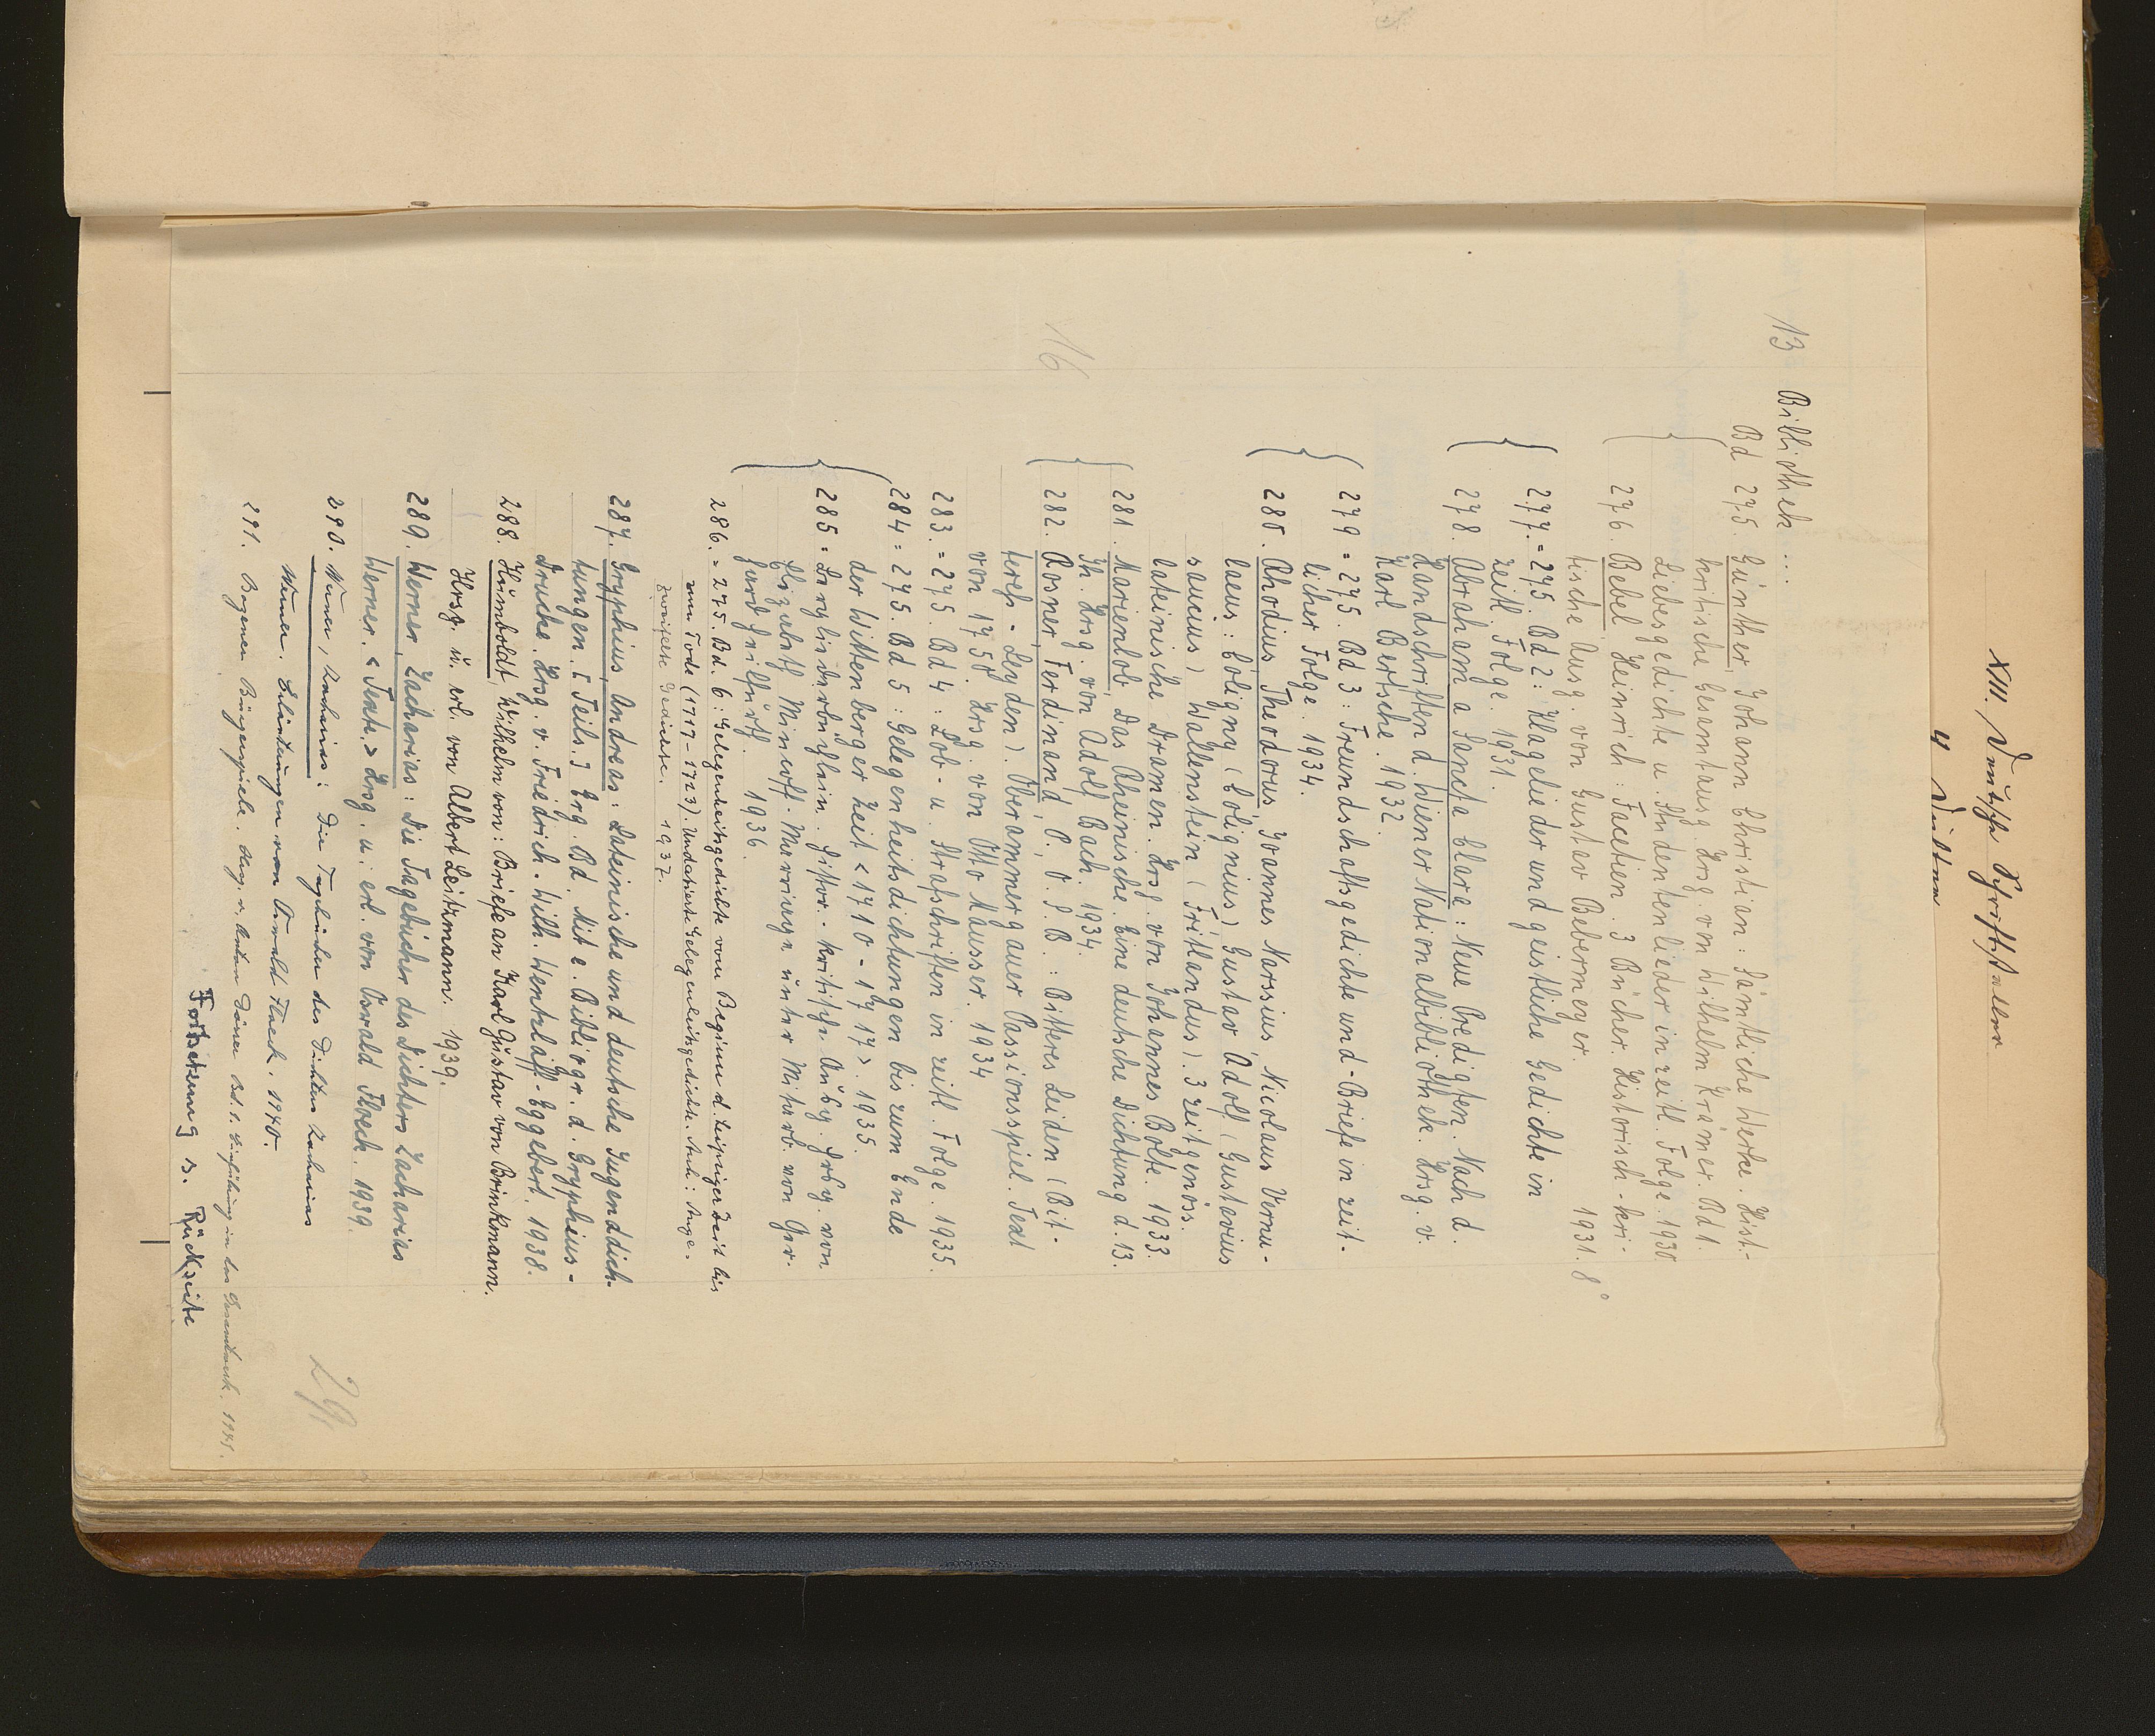 XIII. Deutsche Schriftsteller
4
13 Bibliothek ...
Bd 275. Günther, Johann Christian: Sämtliche Werke. Hist.-
kritische Gesamtausg. Hrsg. von Wilhelm Krämer. Bd 1.
Liebesgedichte u. Studentenlieder in zeitl. Folge. 1930
276. Bebel, Heinrich: Facetien. 3 Bücher. Historisch-kri-
tische Ausg. von Gustav Bebermeyer. 1931. 8°
277. = 275. Bd 2: Klagelieder und geistliche Gedichte in
zeitl. Folge. 1931.
278. Abraham a Sancta Clara: Neue Predigten. Nach d.
Handschriften d. Wiener Nationalbibliothek. Hrsg. v.
Karl Bertsche. 1932.
279 = 275. Bd 3: Freundschaftsgedichte und -Briefe in zeit-
licher Folge. 1934.
280. Rhodius, Theodorus, Joannes Narssius, Nicolaus Vernu-
laeus: Coligny (Colignius), Gustav Adolf (Gustavus
saucius), Wallenstein (Fritlandus). 3 zeitgenöss.
lateinische Dramen. Hrsg. von Johannes Bolte. 1933.
281. Marienlob, Das Rheinische. Eine deutsche Dichtung d. 13.
Jh. Hrsg. von Adolf Bach. 1934.
282. Rosner, Ferdinand, P., O.S.B.: Bitteres Leiden (Bit-
teres Leyden). Oberammergauer Passionsspiel. Text
von 1750. Hrsg. von Otto Mausser. 1934
283. = 275. Bd 4: Lob- u. Strafschriften in zeitl. Folge. 1935.
284 = 275. Bd 5: Gelegenheitsdichtungen bis zum Ende
der Wittenberger Zeit <1710-1717>. 1935.
285 = Bergliederbüchlein. Histor.-kritische Ausg. Hrsg. von
Elizabeth Mincoff-Marriage unter Mitarb. von Ger-
hard Heilfurth. 1936.
286. = 275. Bd. 6: Gelegenheitsgedichte vom Beginn d. Leipziger Zeit bis
zum Tode (1717-1723). Undatierte Gelegenheitsgedichte. Anh.: Ange-
zweifelte Gedichte. 1937.
287. Gryphius, Andreas: Lateinische und deutsche Jugenddich-
tungen. [Teils.] Erg. Bd. Mit e. Bibliogr. d. Gryphius-
Drucke. Hrsg. v. Friedrich-Wilh. Wentzlaff-Eggebert. 1938.
288. Humboldt, Wilhelm von: Briefe an Karl Gustav von Brinkmann.
Hrsg. u. erl. von Albert Leitzmann. 1939.
289. Werner, Zacharias: Die Tagebücher des Dichters Zacharias
Werner. <Texte.> Hrsg. u. erl. von Oswald Floeck. 1939.
290. Werner, Zacharias: Die Tagebücher des Dichters Zacharias
Werner. Erläuterungen von Oswald Floeck. 1940.
291. Bozener Bürgerspiele. Hrsg. v. Anton Dörrer Bd. 1. Einführung in das Gesamtwerk. 1941.
Fortsetzung s. Rückseite
116
29